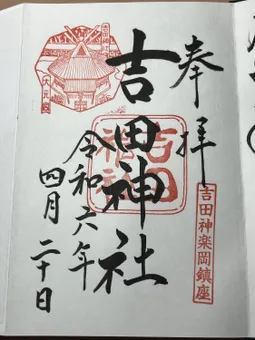 奉拝
吉田神楽岡鎮座
吉田神社
吉田神社
令和六年
四月二十日
大元宮